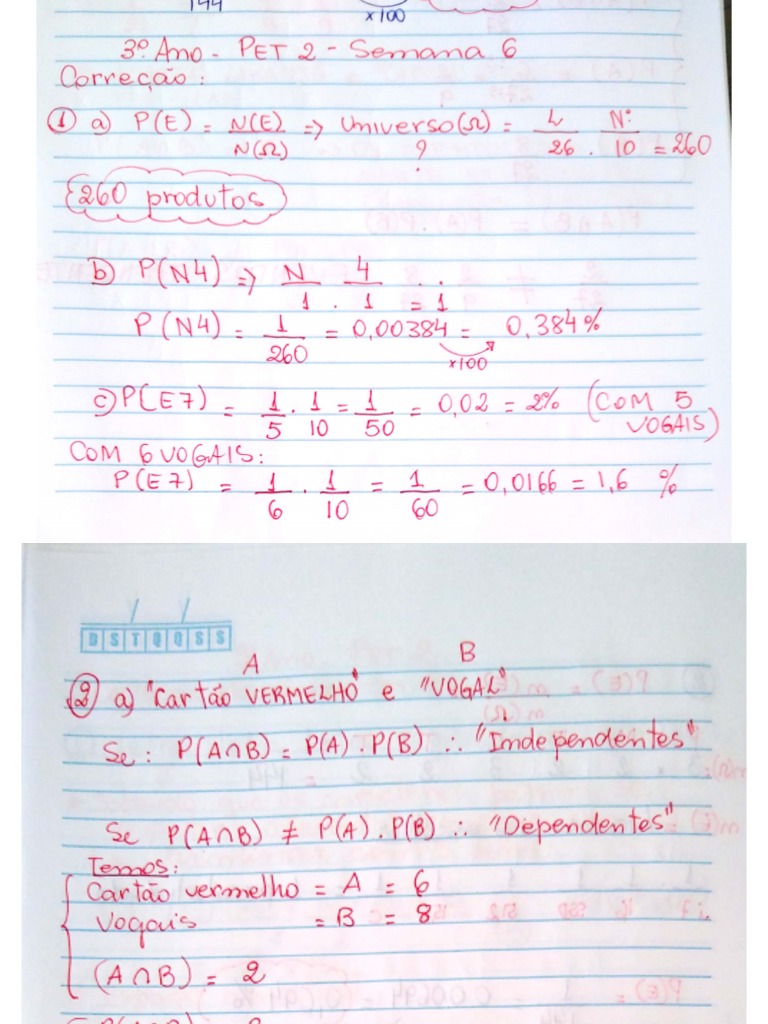 144
x100
3º Ano - PET 2 - Semana 6
Correção:
① a) P(E) = N(E)/N(Ω) => Universo(Ω) = L/26 . Nº/10 = 260
?
{260 produtos}
b) P(N4) => N/1 . 4/1 = 1
P(N4) = 1/260 = 0,00384 = 0,384%
x100
c) P(E7) = 1/5 . 1/10 = 1/50 = 0,02 = 2% (COM 5 VOGAIS)
COM 6 VOGAIS:
P(E7) = 1/6 . 1/10 = 1/60 = 0,0166 = 1,6 %
D S T Q Q S S
A B
② a) "Cartão VERMELHO" e "VOGAL"
Se: P(A∩B) = P(A) . P(B) ∴ "Independentes"
Se P(A∩B) ≠ P(A) . P(B) ∴ "Dependentes"
Temos:
Cartão vermelho = A = 6
Vogais = B = 8
(A∩B) = 2